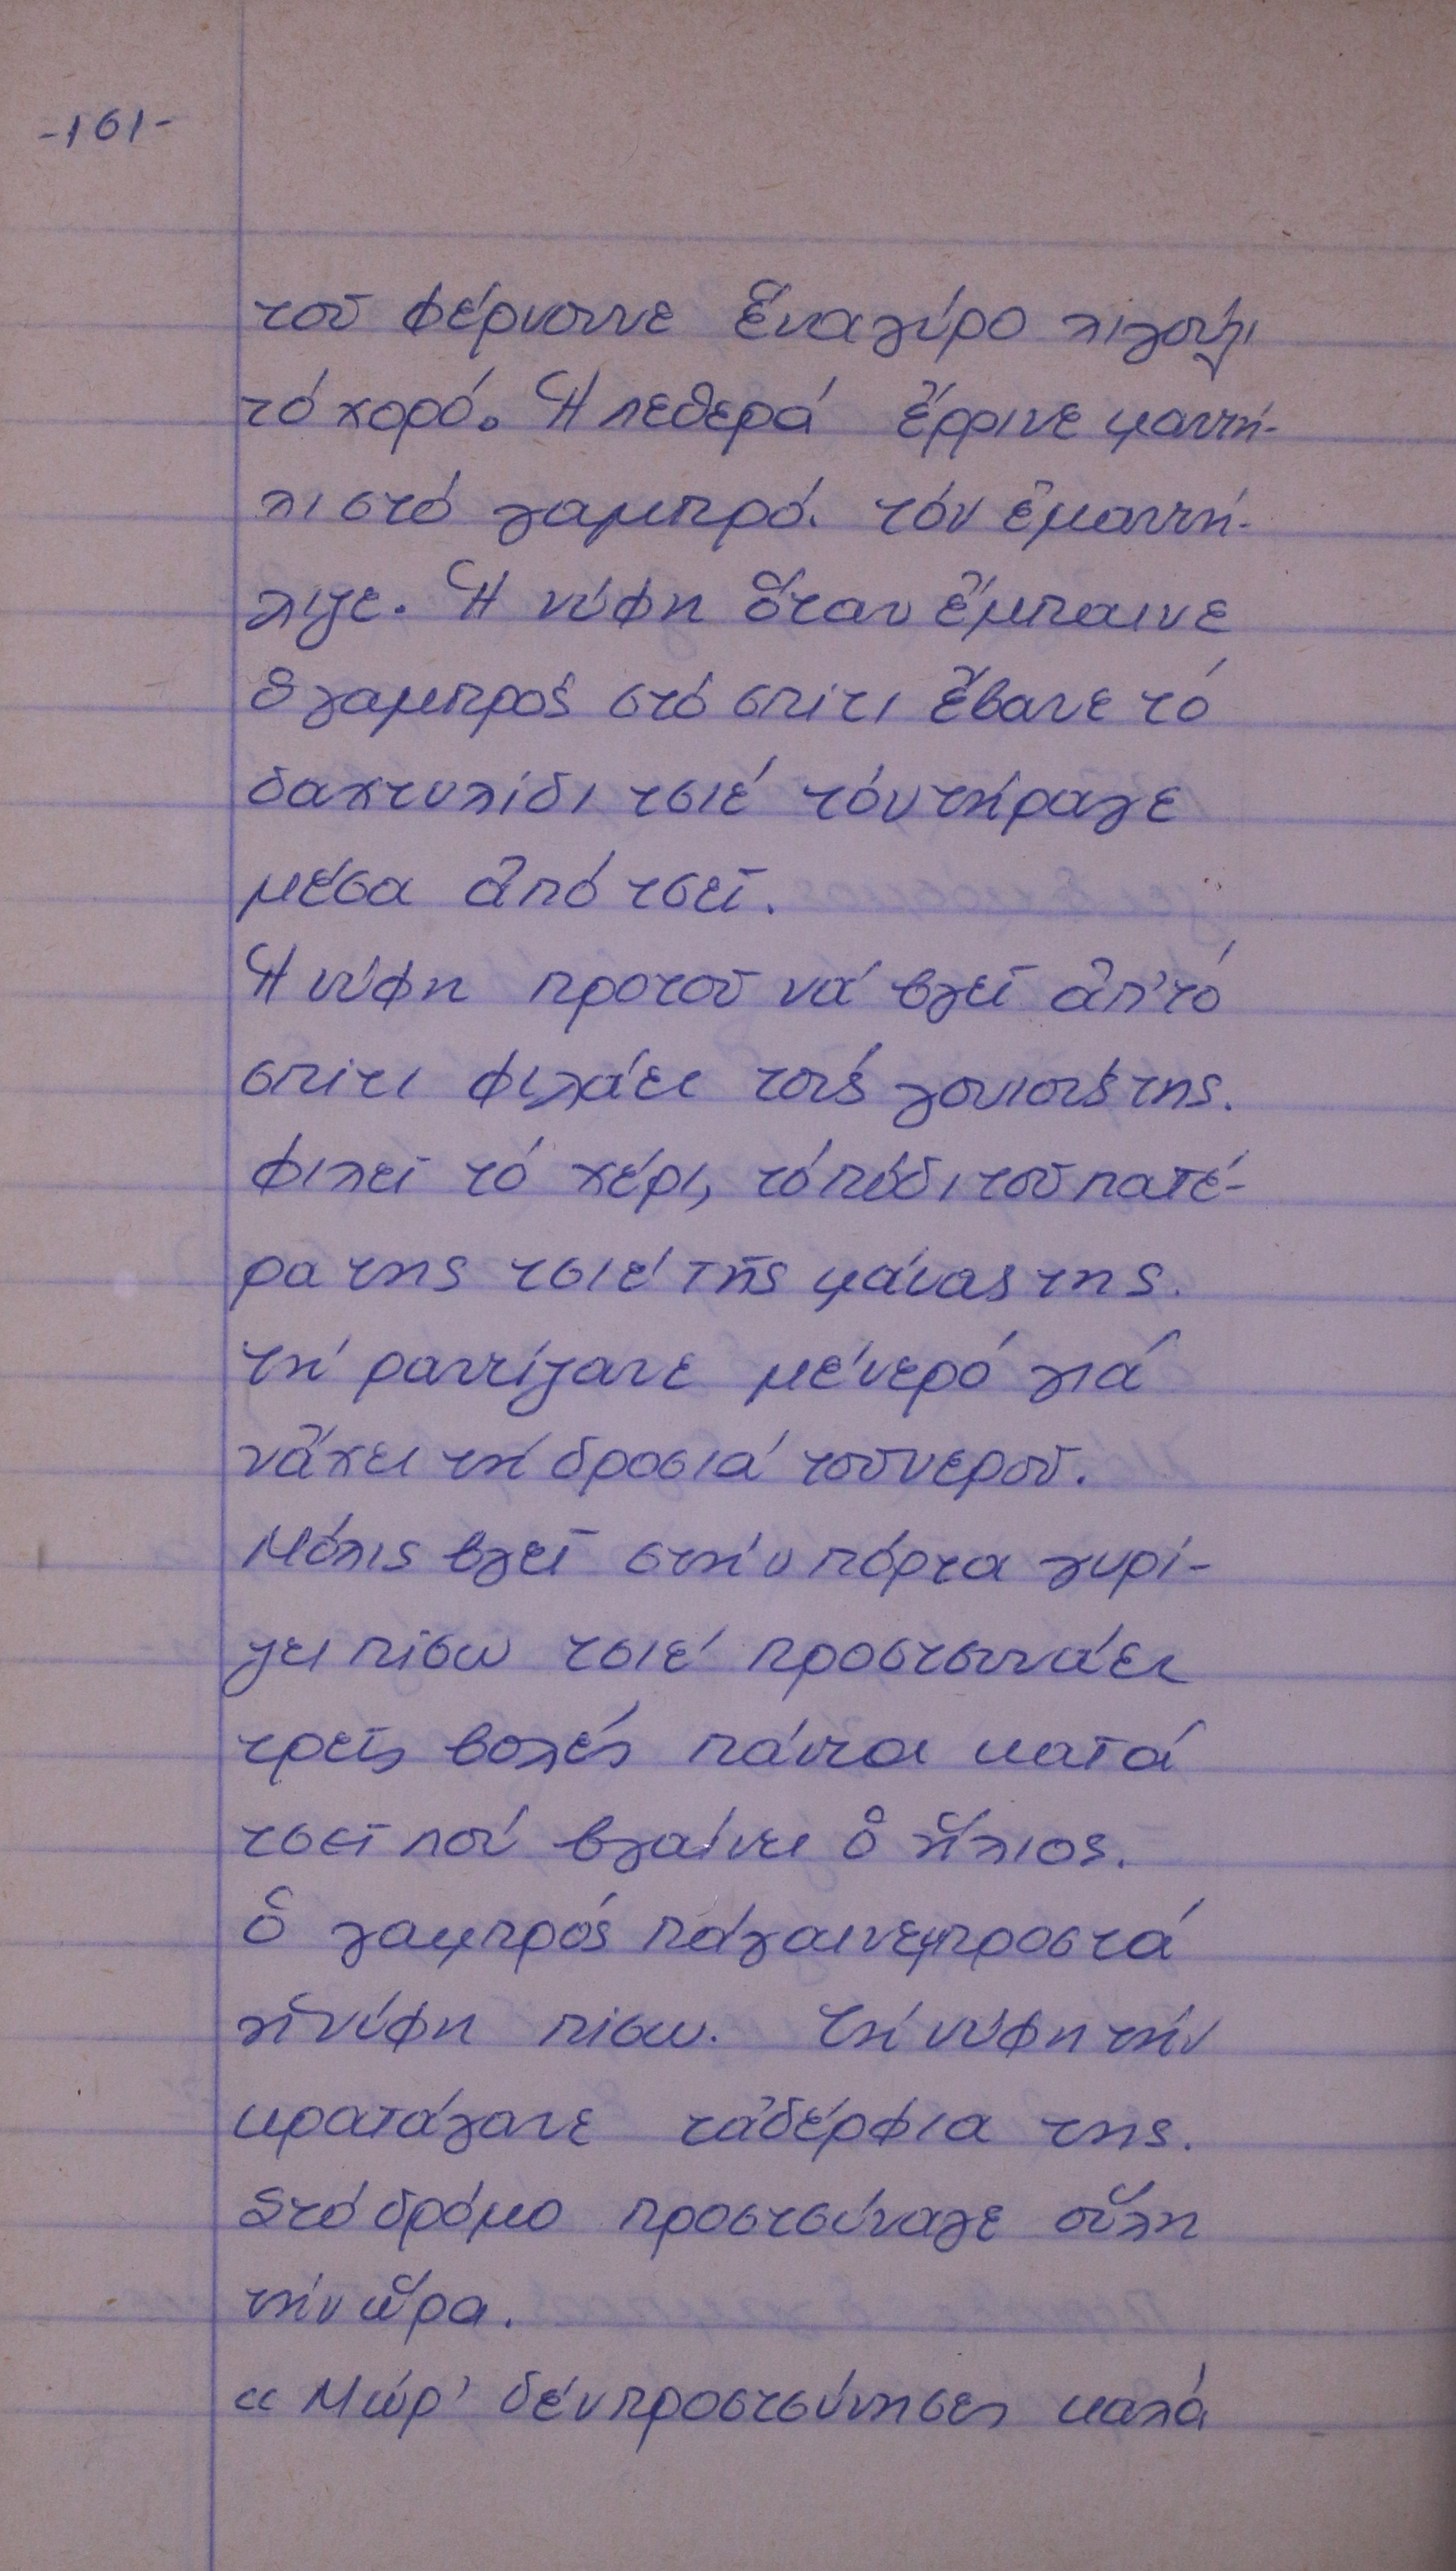 -161-
τοῦ φέρνουνε ἕναγύρο λιγούλι
τό χορό. Ἡ πεθερά ἔρρινε μαντή-
λι στό γαμπρό. τόν ἐμαντή-
λιζε. Ἡ νύφη ὅταν ἔμπαινε
ὁ γαμπρός στό σπίτι ἔβανε τό
δαχτυλίδι τσιέ τόν τήραγε
μέσα ἀπό τσεῖ.
Ἡ νύφη προτοῦ νά βγεῖ ἀπ' τό
σπίτι φιλάει τούς γονιούς της.
φιλεῖ τό χέρι, τό πόδι τοῦ πατέ-
ρα της τσιέ τῆς μάνας της.
τή ραντίζανε μέ νερό γιά
νἄχει τή δροσιά τοῦ νεροῦ.
Μόλις βγεῖ στήν πόρτα γυρί-
ζει πίσω τσιέ προστσυνάει
τρεῖς βολές πάντα κατά
τσεῖ πού βγαίνει ὁ ἥλιος.
ὁ γαμπρός πάγαινε μπροστά
ἡ νύφη πίσω. τή νύφη τήν
κρατάγανε τἀδέρφια της.
Στό δρόμο προστσύναγε οὕλη
τήν ὥρα.
« Μώρ' δέν προστσύνησες καλά